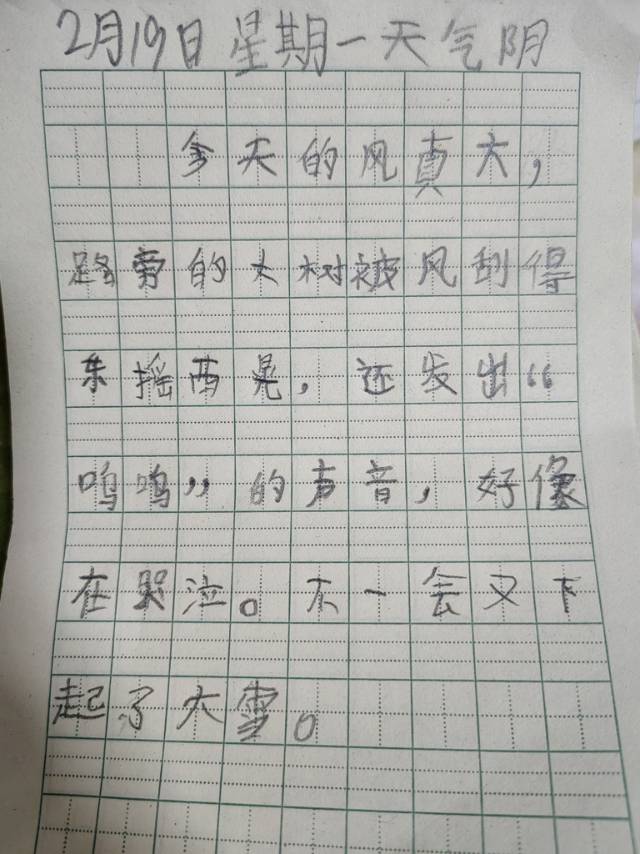 2月19日 星期一 天气阴
今天的风真大，
路旁的大树被风刮得
东摇西晃，还发出“
呜呜”的声音，好像
在哭泣。不一会又下
起了大雪。